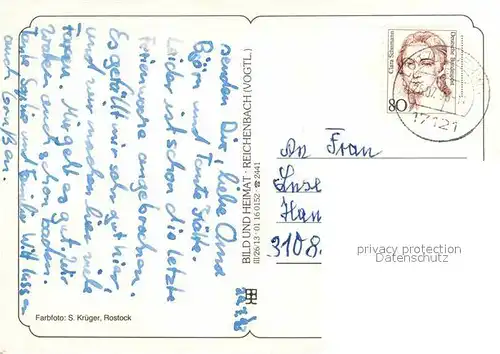 senden Dir, liebe Oma
Björn und Tante
Leider ist schon die letzte
Ferienwoche angebrochen.
Es gefällt mir sehr gut hier,
und wir machen hier viele
Touren. Mir geht es gut. Wir
waren auch schon baden.
Tante und Familie Witt lassen
auch grüßen.
Farbfoto: S. Krüger, Rostock
BILD UND HEIMAT · REICHENBACH (VOGTL.)
III/26/13 · 01 16 0152 · ☎ 2441
Clara Schumann
Deutsche Bundespost
80
17121
An Frau
Han
3108.
privacy protection
Datenschutz